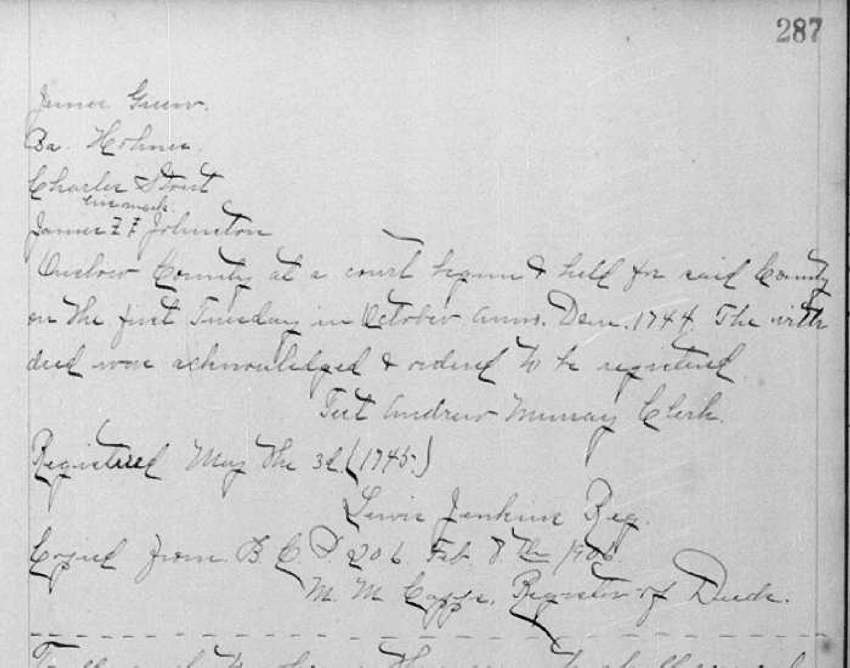 287
James Green.
Ba. Holmes.
Charles Stout
his mark.
James Johnston
Onslow County at a court begun & held for said County
on the first Tuesday in October Anno. Dom. 1744. The with
deed was acknowledged & ordered to be registered
Test Andrew Murray Clerk.
Registered May the 3d (1745)
Lewis Jenkins Reg.
Copied from B C. P. 206. Feb. 8th
M. M Capps. Register of Deeds.